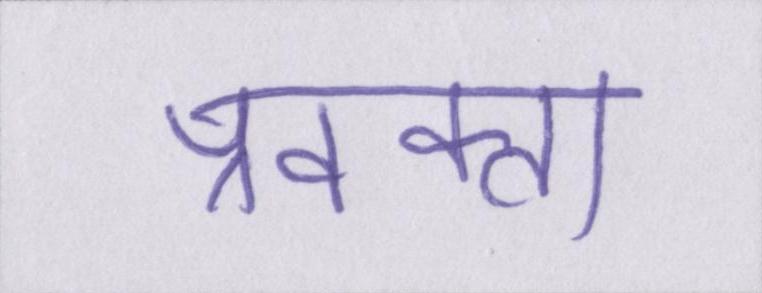 प्रवक्ता